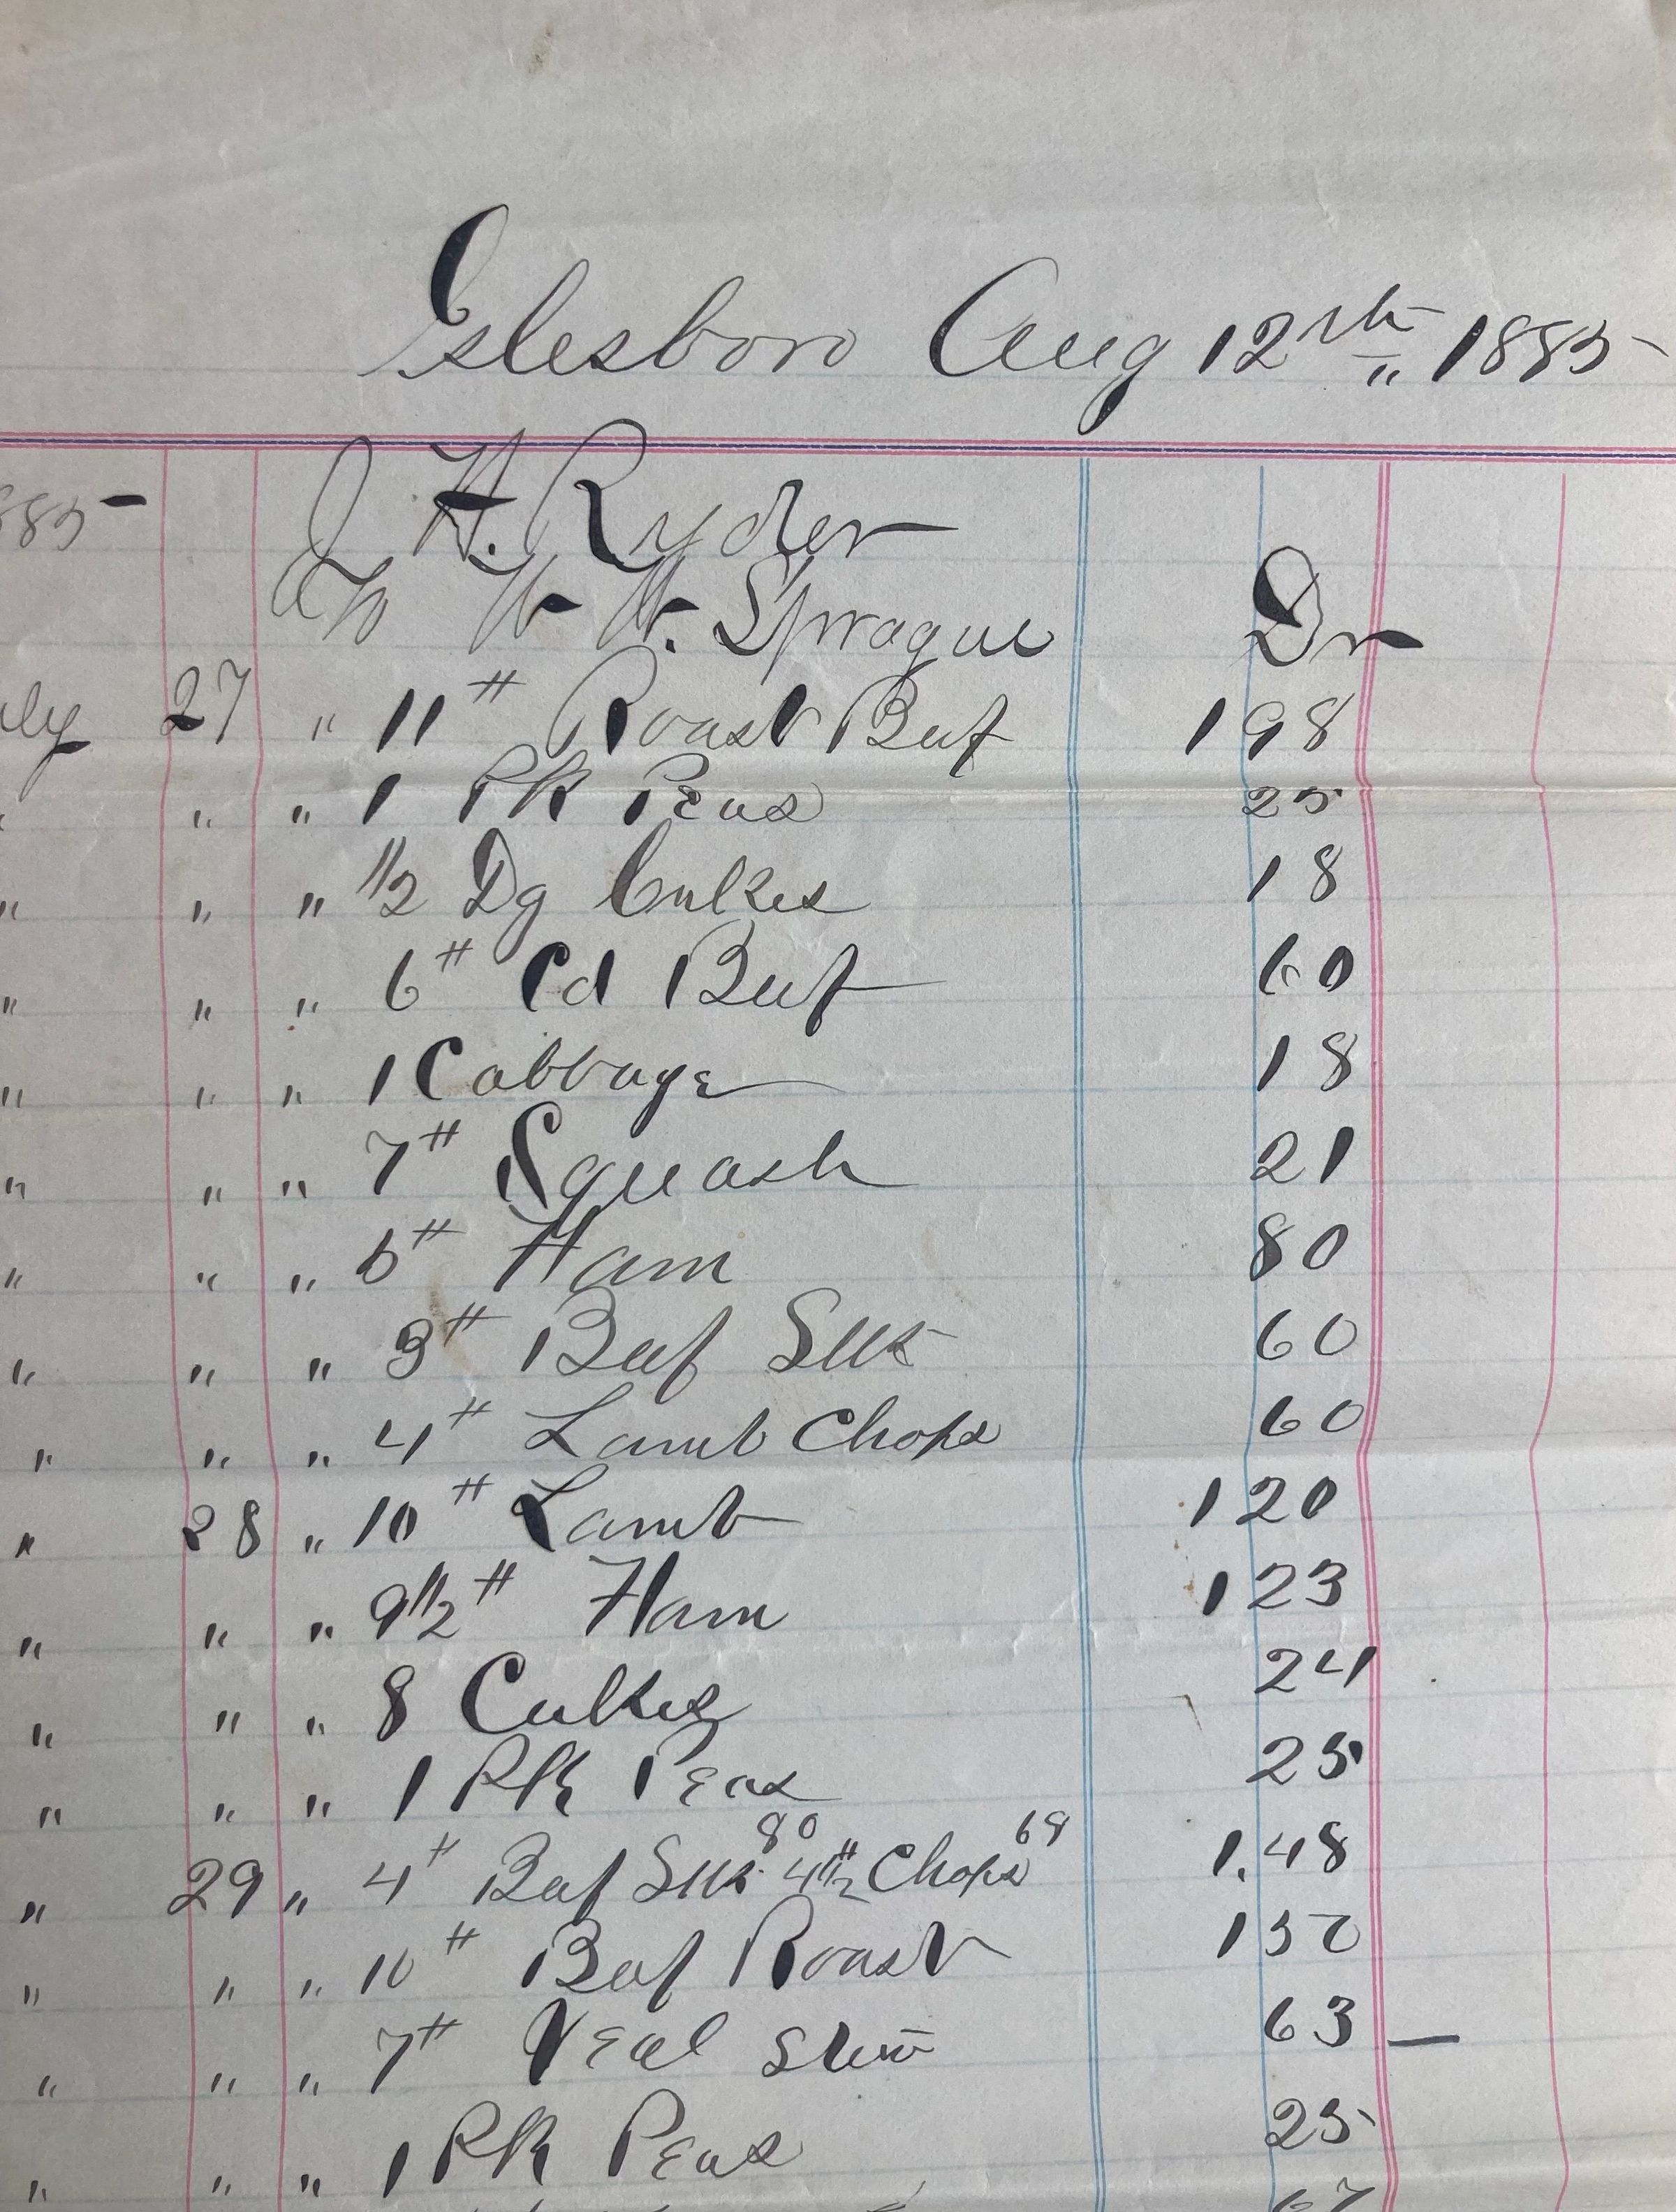 Islesboro Aug 12th " 1885
885 - J. H. Ryder
To W. W. Sprague Dr
uly 27 " 11 # Roast Beef 1 98
" " " 1 Pk Peas 25
" " " 1/2 Dz Cukes 18
" " " 6 # Cd Beef 60
" " " 1 Cabbage 18
" " " 7 # Squash 21
" " " # Ham 80
" " " 3 # Beef Stk 60
" " " 4 # Lamb Chops 60
" 28 " 10 # Lamb 1 20
" " " 9 1/2 # Ham 1 23
" " " 8 Cukes 24
" " " 1 Pk Peas 25
" 29 " 4 # Beef Stk 80 4 1/2 # Chops 68 1.48
" " " 10 # Beef Roast 1 50
" " " 7 # Veal Stew 63 —
" " " 1 Pk Peas 25
67